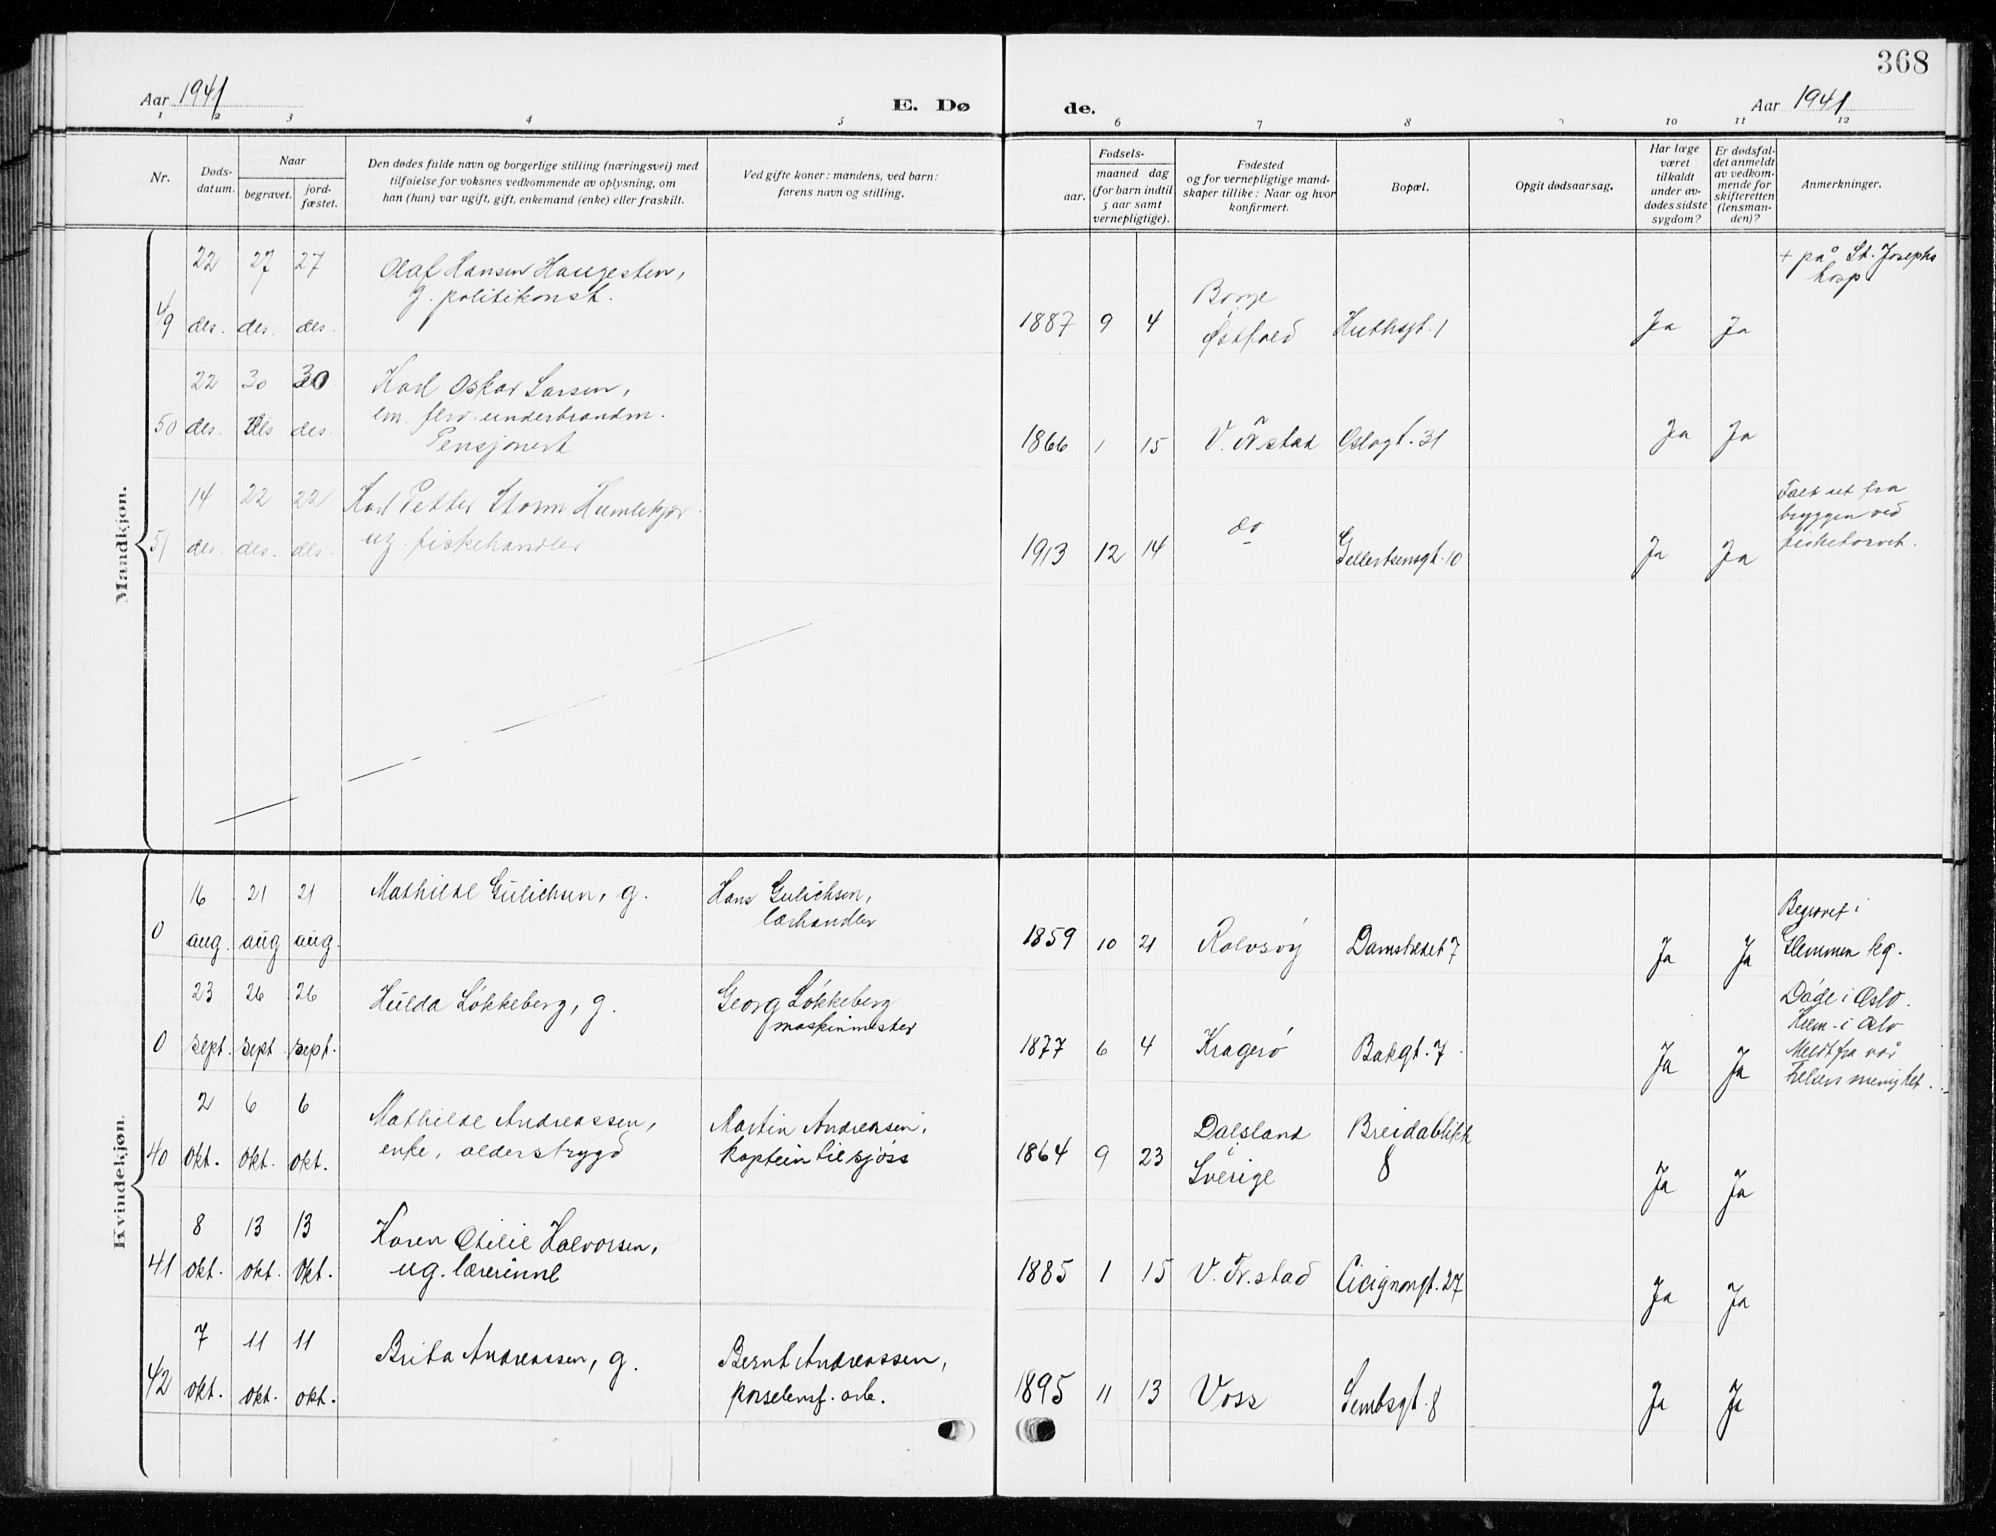 368
Aar 1941
E. Dø
de.
Aar 1941
1 2 3 4 5 6 7 8 9 10 11 12
Nr.
Døds-
datum.
Naar
begravet.
jord-
fæstet.
Den dødes fulde navn og borgerlige stilling (næringsvei) med
tilføielse for voksnes vedkommende av oplysning, om
han (hun) var ugift, gift, enkemand (enke) eller fraskilt.
Ved gifte koner: mandens, ved barn:
farens navn og stilling.
Fødsels-
aar.
maaned dag
(for barn indtil
5 aar samt
vernepligtige).
Fødested
og for vernepligtige mand-
skaper tillike: Naar og hvor
konfirmert.
Bopæl.
Opgit dødsaarsag.
Har læge
været
tilkaldt
under av-
dødes sidste
sygdom?
Er dødsfal-
det anmeldt
av vedkom-
mende for
skifteretten
(lensman-
den)?
Anmerkninger.
Mandkjøn.
49
22 27 27
des. des. des.
Olaf Hansen Haugesten,
g. politikonst.
1887 9 4
Borge
Østfold
Huthsgt. 1
Ja Ja
+ på St. Josephs
hosp
50
22 30 30
des. des des.
Karl Oskar Larsen,
em. fhv. underbrandm.
Pensjonert
1866 1 15
V. Fr.stad
Oslogt. 31
Ja Ja
51
14 22 22
des. des. des.
Karl Petter Storm Humlekjær
ug. fiskehandler
1913 12 14
do
Gellertsensgt. 10
Ja Ja
Falt ut fra
bryggen ved
fisketorvet.
Kvindekjøn.
0
16 21 21
aug. aug aug.
Mathilde Gulichsen, g.
Hans Gulichsen,
lærhandler
1859 10 21
Rolvsøy
Damstredet 7
Ja Ja
Begravet i
Glemmen kg.
0
23 26 26
sept. sept. sept.
Hulda Løkkeberg, g.
Georg Løkkeberg
maskinmester
1877 6 4
Kragerø
Bakgt. 7.
Ja Ja
Døde i Oslo.
Krem. i Oslo
Meldt fra vår
Frelsers menighet.
40
2 6 6
okt. okt. okt.
Mathilde Andreassen,
enke, alderstrygd
Martin Andreasen,
kaptein til sjøss
1864 9 23
Dalsland
Sverige
Breidablikk
8
Ja Ja
41
8 13 13
okt. okt. okt.
Karen Otilie Halvorsen,
ug. lærerinne
1885 1 15
V. Fr.stad
Cicignongt. 27
Ja Ja
42
7 11 11
okt. okt. okt.
Brita Andreassen, g.
Bernt Andreassen,
porselensf. arb.
1895 11 13
Voss
Sembsgt. 8
Ja Ja